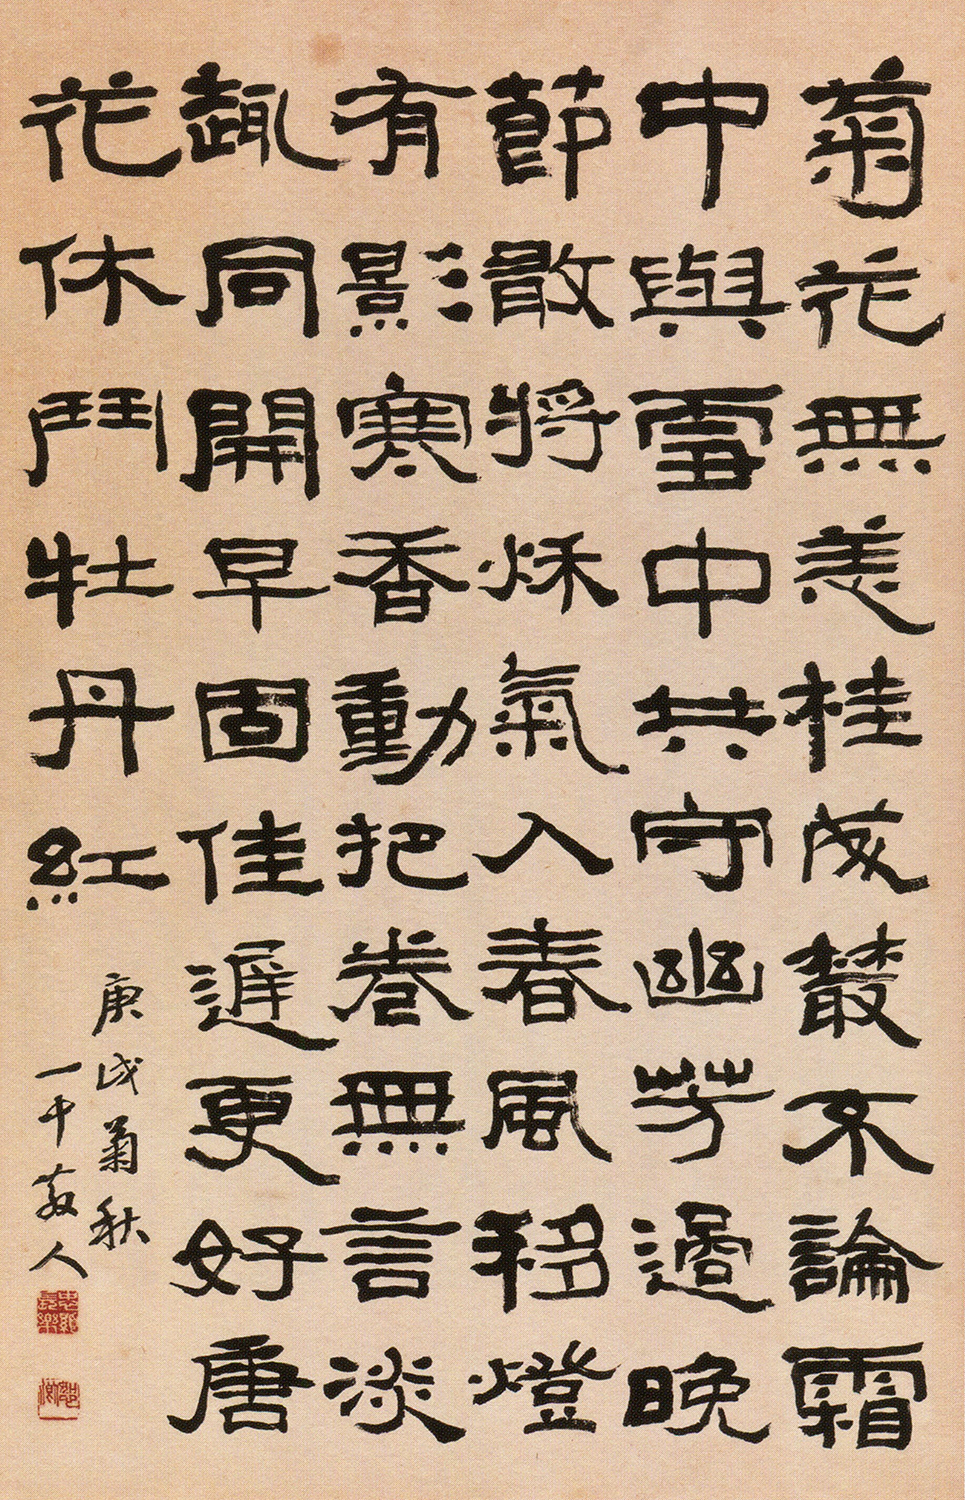 菊花無恙桂成叢不論霜
中與雪中共守幽芳過晚
節敢將秌氣入春風移燈
有影寒香動把卷無言淡
趣同開早固佳遲更好唐
花休鬥牡丹紅
庚戌菊秋
一散人